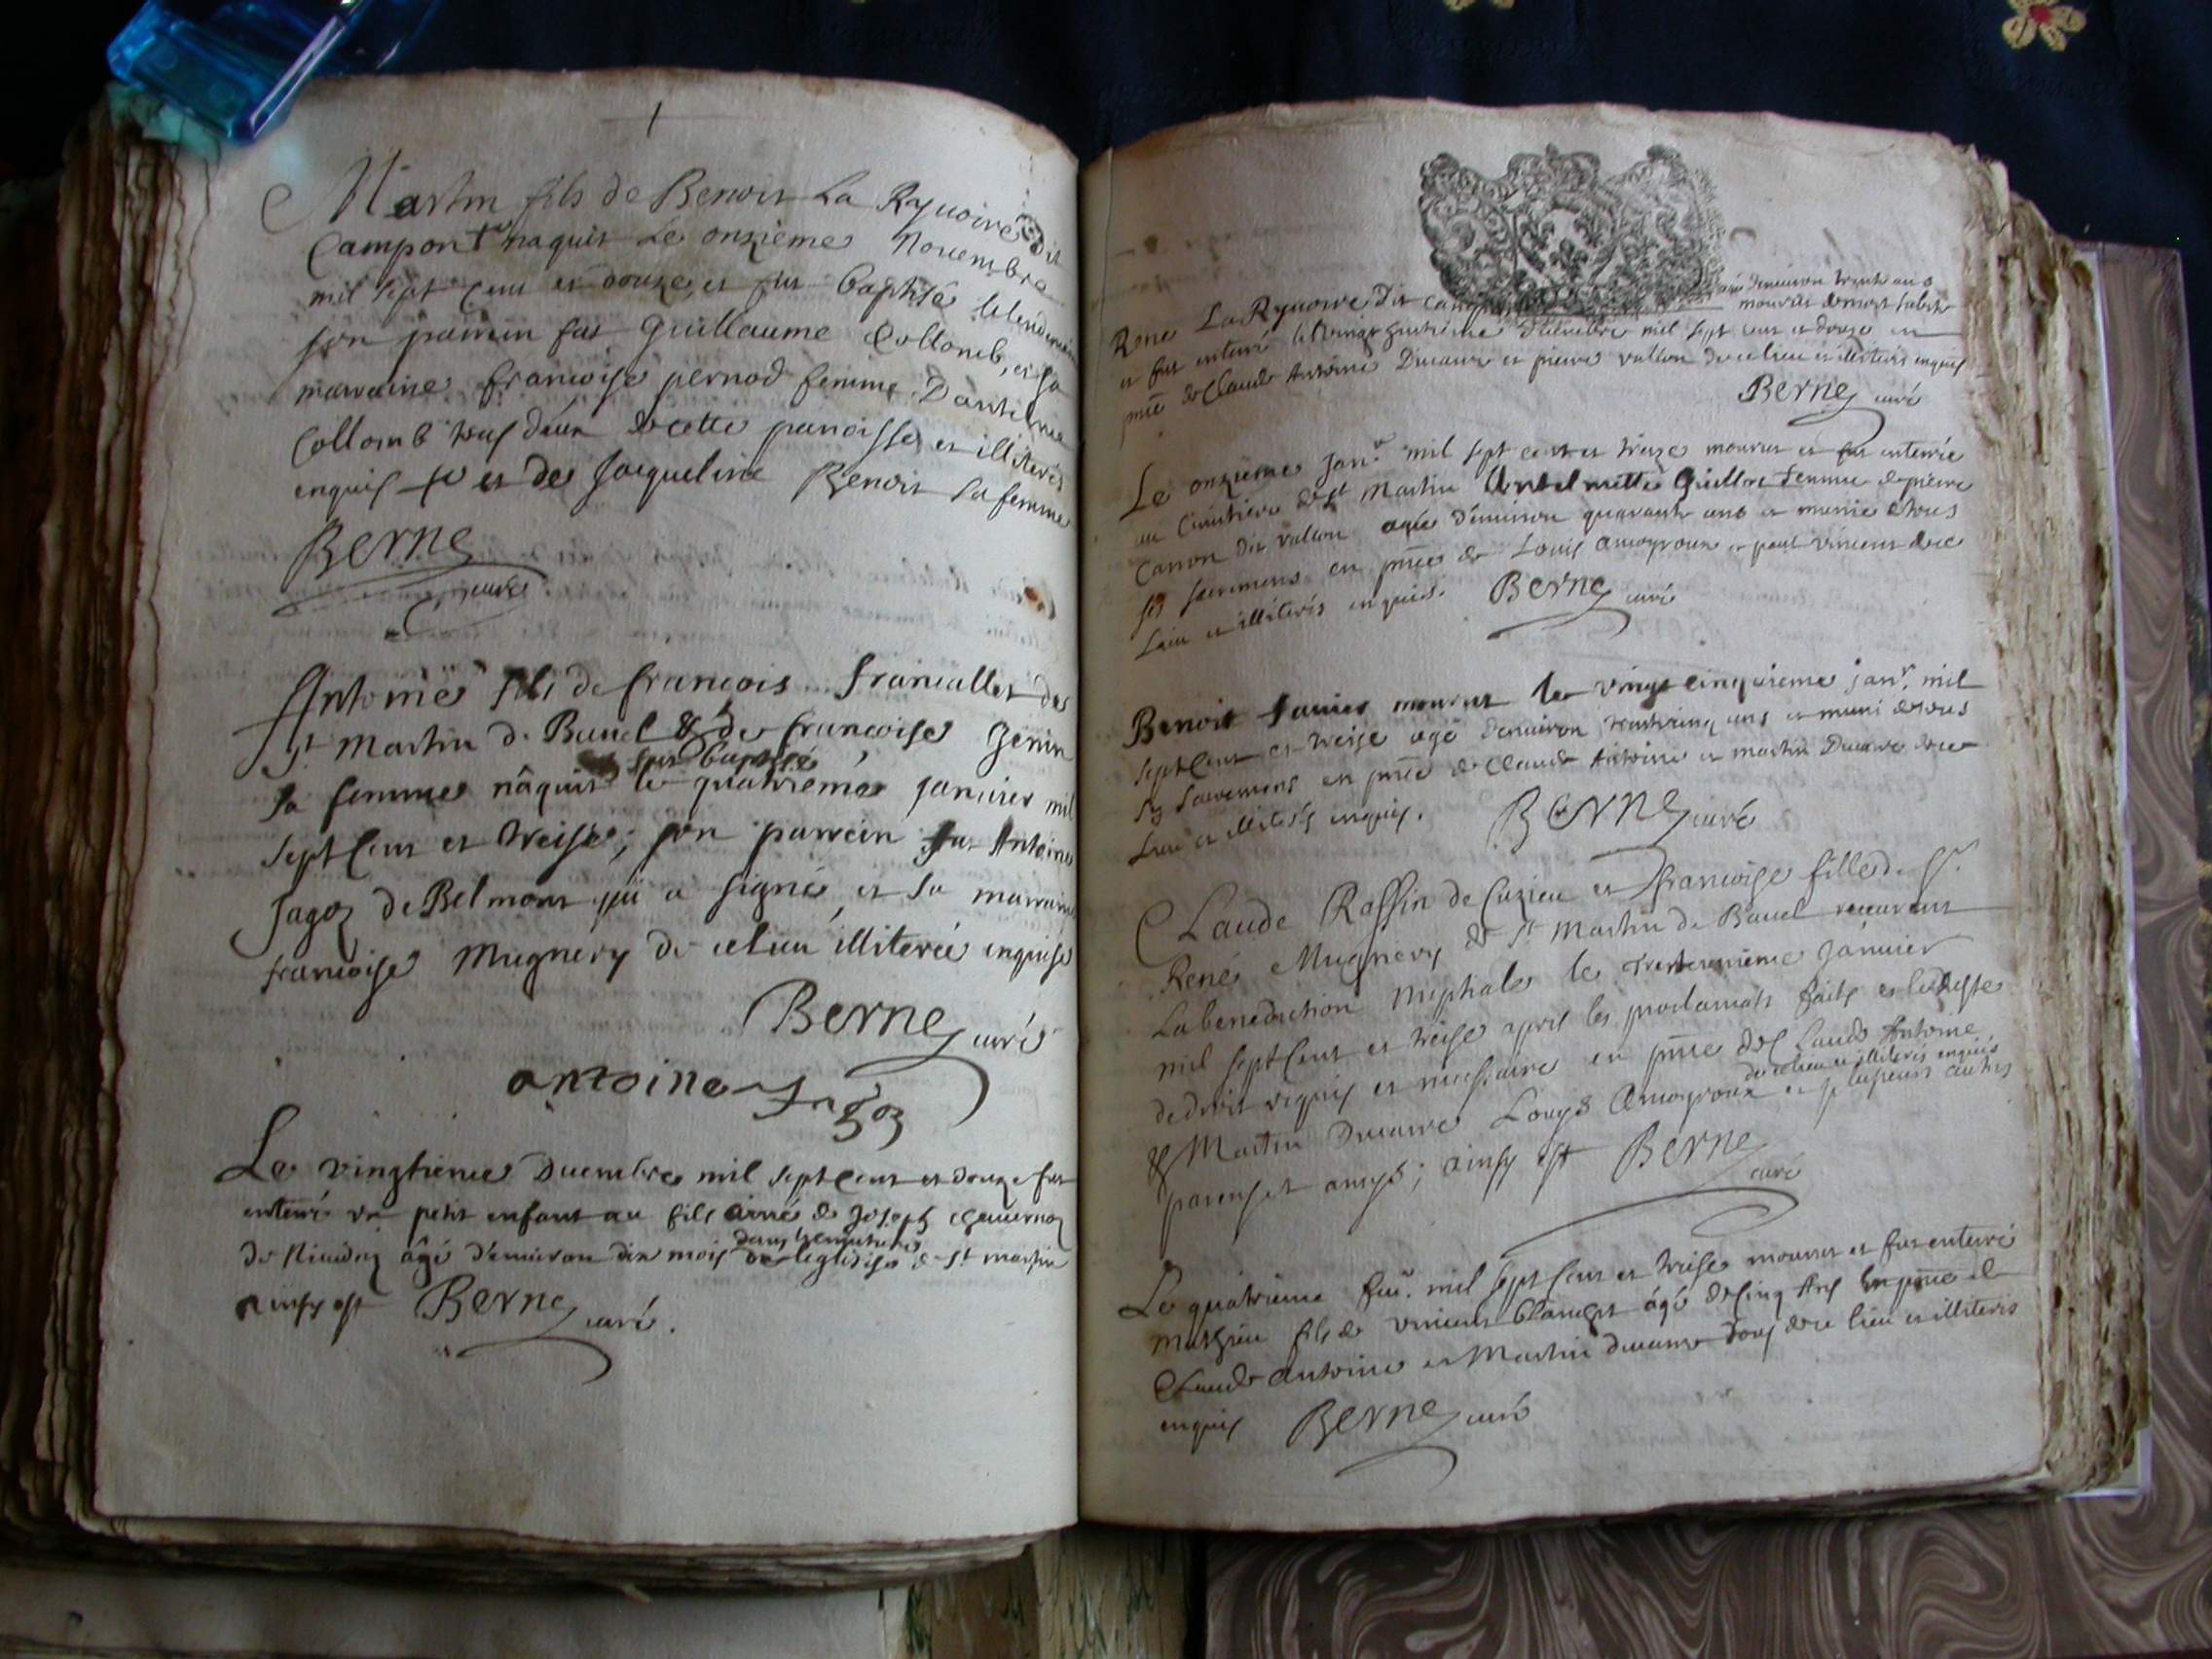 Martin fils de Benoit La Rynoire dit
Campont naquit le onzieme Novembre
mil sept Cent et douze et fut baptisé le lendemain
son parrein fut Guillaume Collomb, et sa
marraine francoise pernod femme Dantelme
Collomb tous deux de cette paroisse et illiterés
enquis et de Jacqueline Benoit sa femme
Berne
curé
Antoine fils de francois francallet de
St Martin de Bavel & de francoise Genin
fut baptisé
sa femme nâquit le quatrieme Janvier mil
sept Cent et treise; son parrein fut Antoine
Jagoz de Belmont qui a signé et sa marraine
francoise Mugnery de ce lieu illiterée enquise
Berne curé
antoine Jagoz
Le vingtieme Decembre mil sept Cent et douze fut
enterré un petit enfant au fils ainé de Joseph
de âgé d'environ dix mois de l'eglise de St martin
dans le cimetiere
ainsy est Berne curé.
Rene La Rynoire dit environ trente ans
mourut de mort subite
et fut enterré le vingt huitieme decembre mil sept cent et douze en
pnce de Claude Antoine Ducarre et pierre vallon de ce lieu et illiterés enquis
Berne curé
Le onzieme Janr. mil sept cent et treize mourut et fut enterrée
au Cimitiere de St Martin Antelmette Guillot femme de pierre
Canon dit vallon agée d'environ quarante ans et munie de tous
ses sacremens en pnce de Louis amoyroux et paul vincent de ce
Lieu et illiterés enquis. Berne curé
Benoit mourut le vingt cinquieme janr. mil
sept Cent et treise agé denviron trente cinq ans et muni de tous
ses Sacremens en pnce de Claude Antoine et martin Ducarre de ce
Lieu et illiterés enquis. Berne curé
Claude Raffin de Cuzieu et francoise fille de Sr.
René Mugnery de St Martin de Bavel recurent
La benediction Nuptiale le trente unieme Janvier
mil sept Cent et treise apres les proclamats faits et le reste
de droit requis et necessaire en pnce de Claude Antoine
de ce lieu et illiterés enquis
& Martin Ducarre Louys Amoyroux et plusieurs autres
parens et amys; ainsy est Berne
curé
Le quatrieme feu. mil sept Cent et treise mourut et fut enterré
Mathieu fils de vincent blanchet âgé de Cinq Ans en pnce de
Claude Antoine et Martin ducarre tous de ce lieu et illiterés
enquis Berne curé